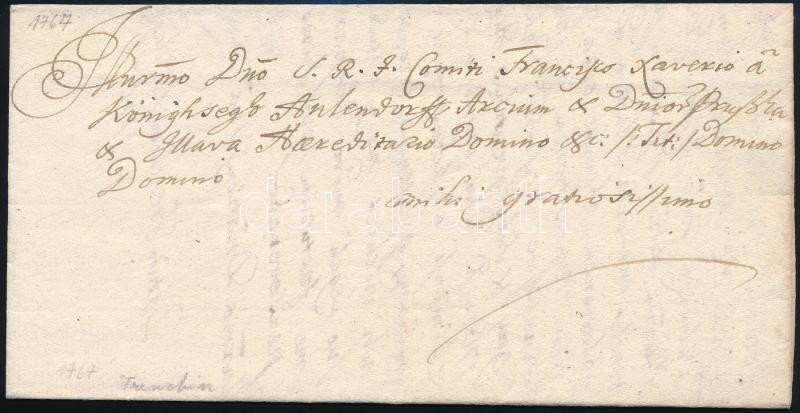 1767
Illurmo Dno S. R. I. Comiti Francisco Xaverio a
Könighsegh Aulendorff Arcium & Dnior Prusskа
& Illava Haereditario Domino &c: /: Tit: / Domino
Domino
mihi gratiosissimo
darabanth
1767
Trenchin